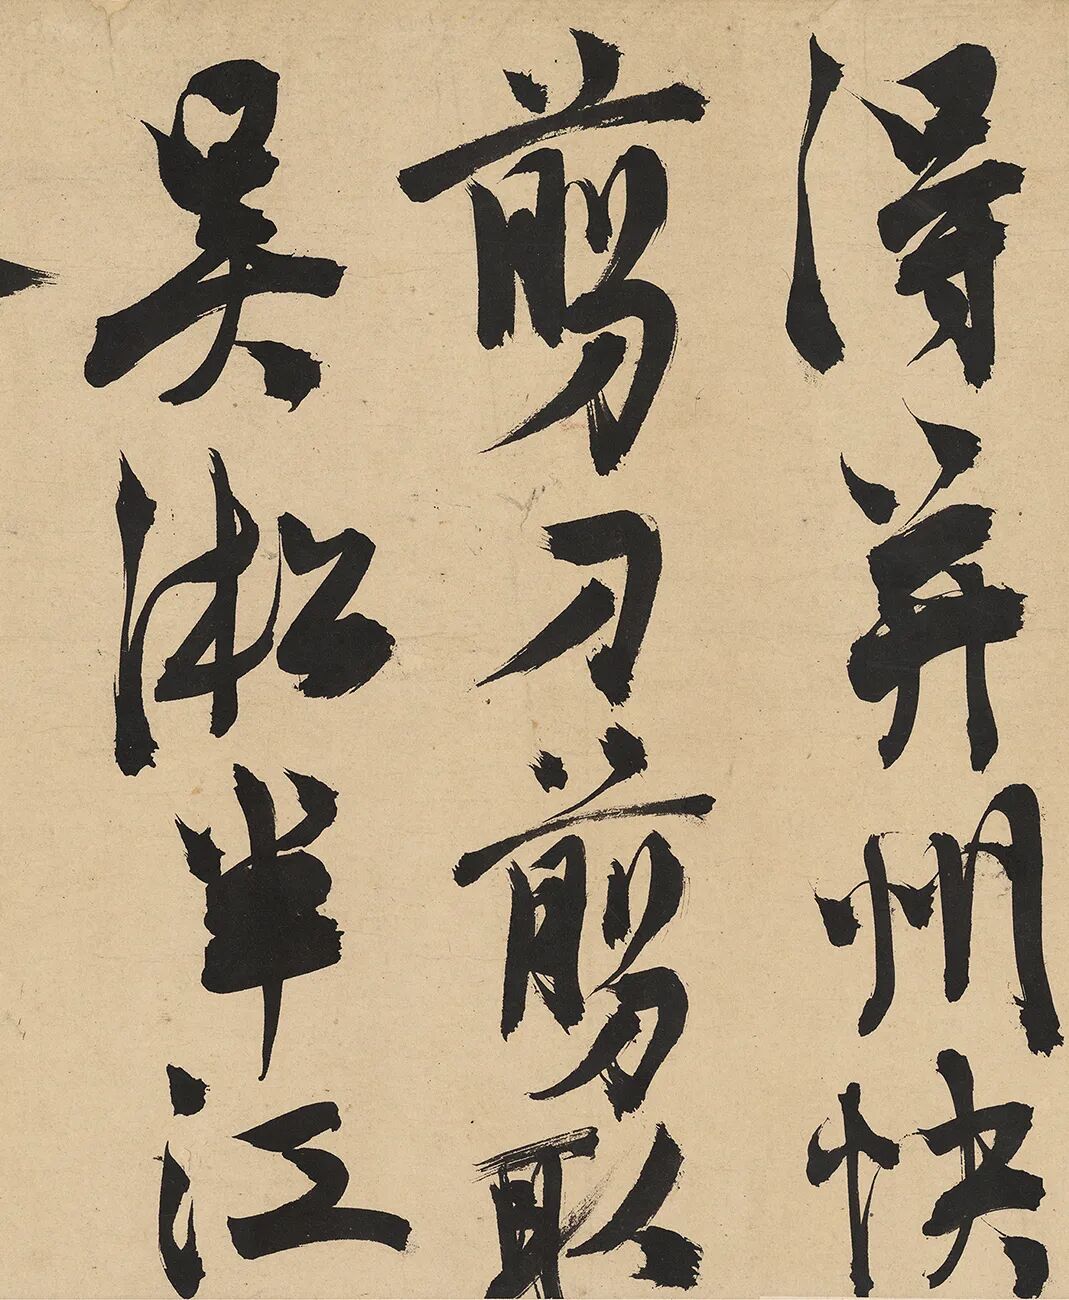 得并州快
剪刀剪取
吴淞半江